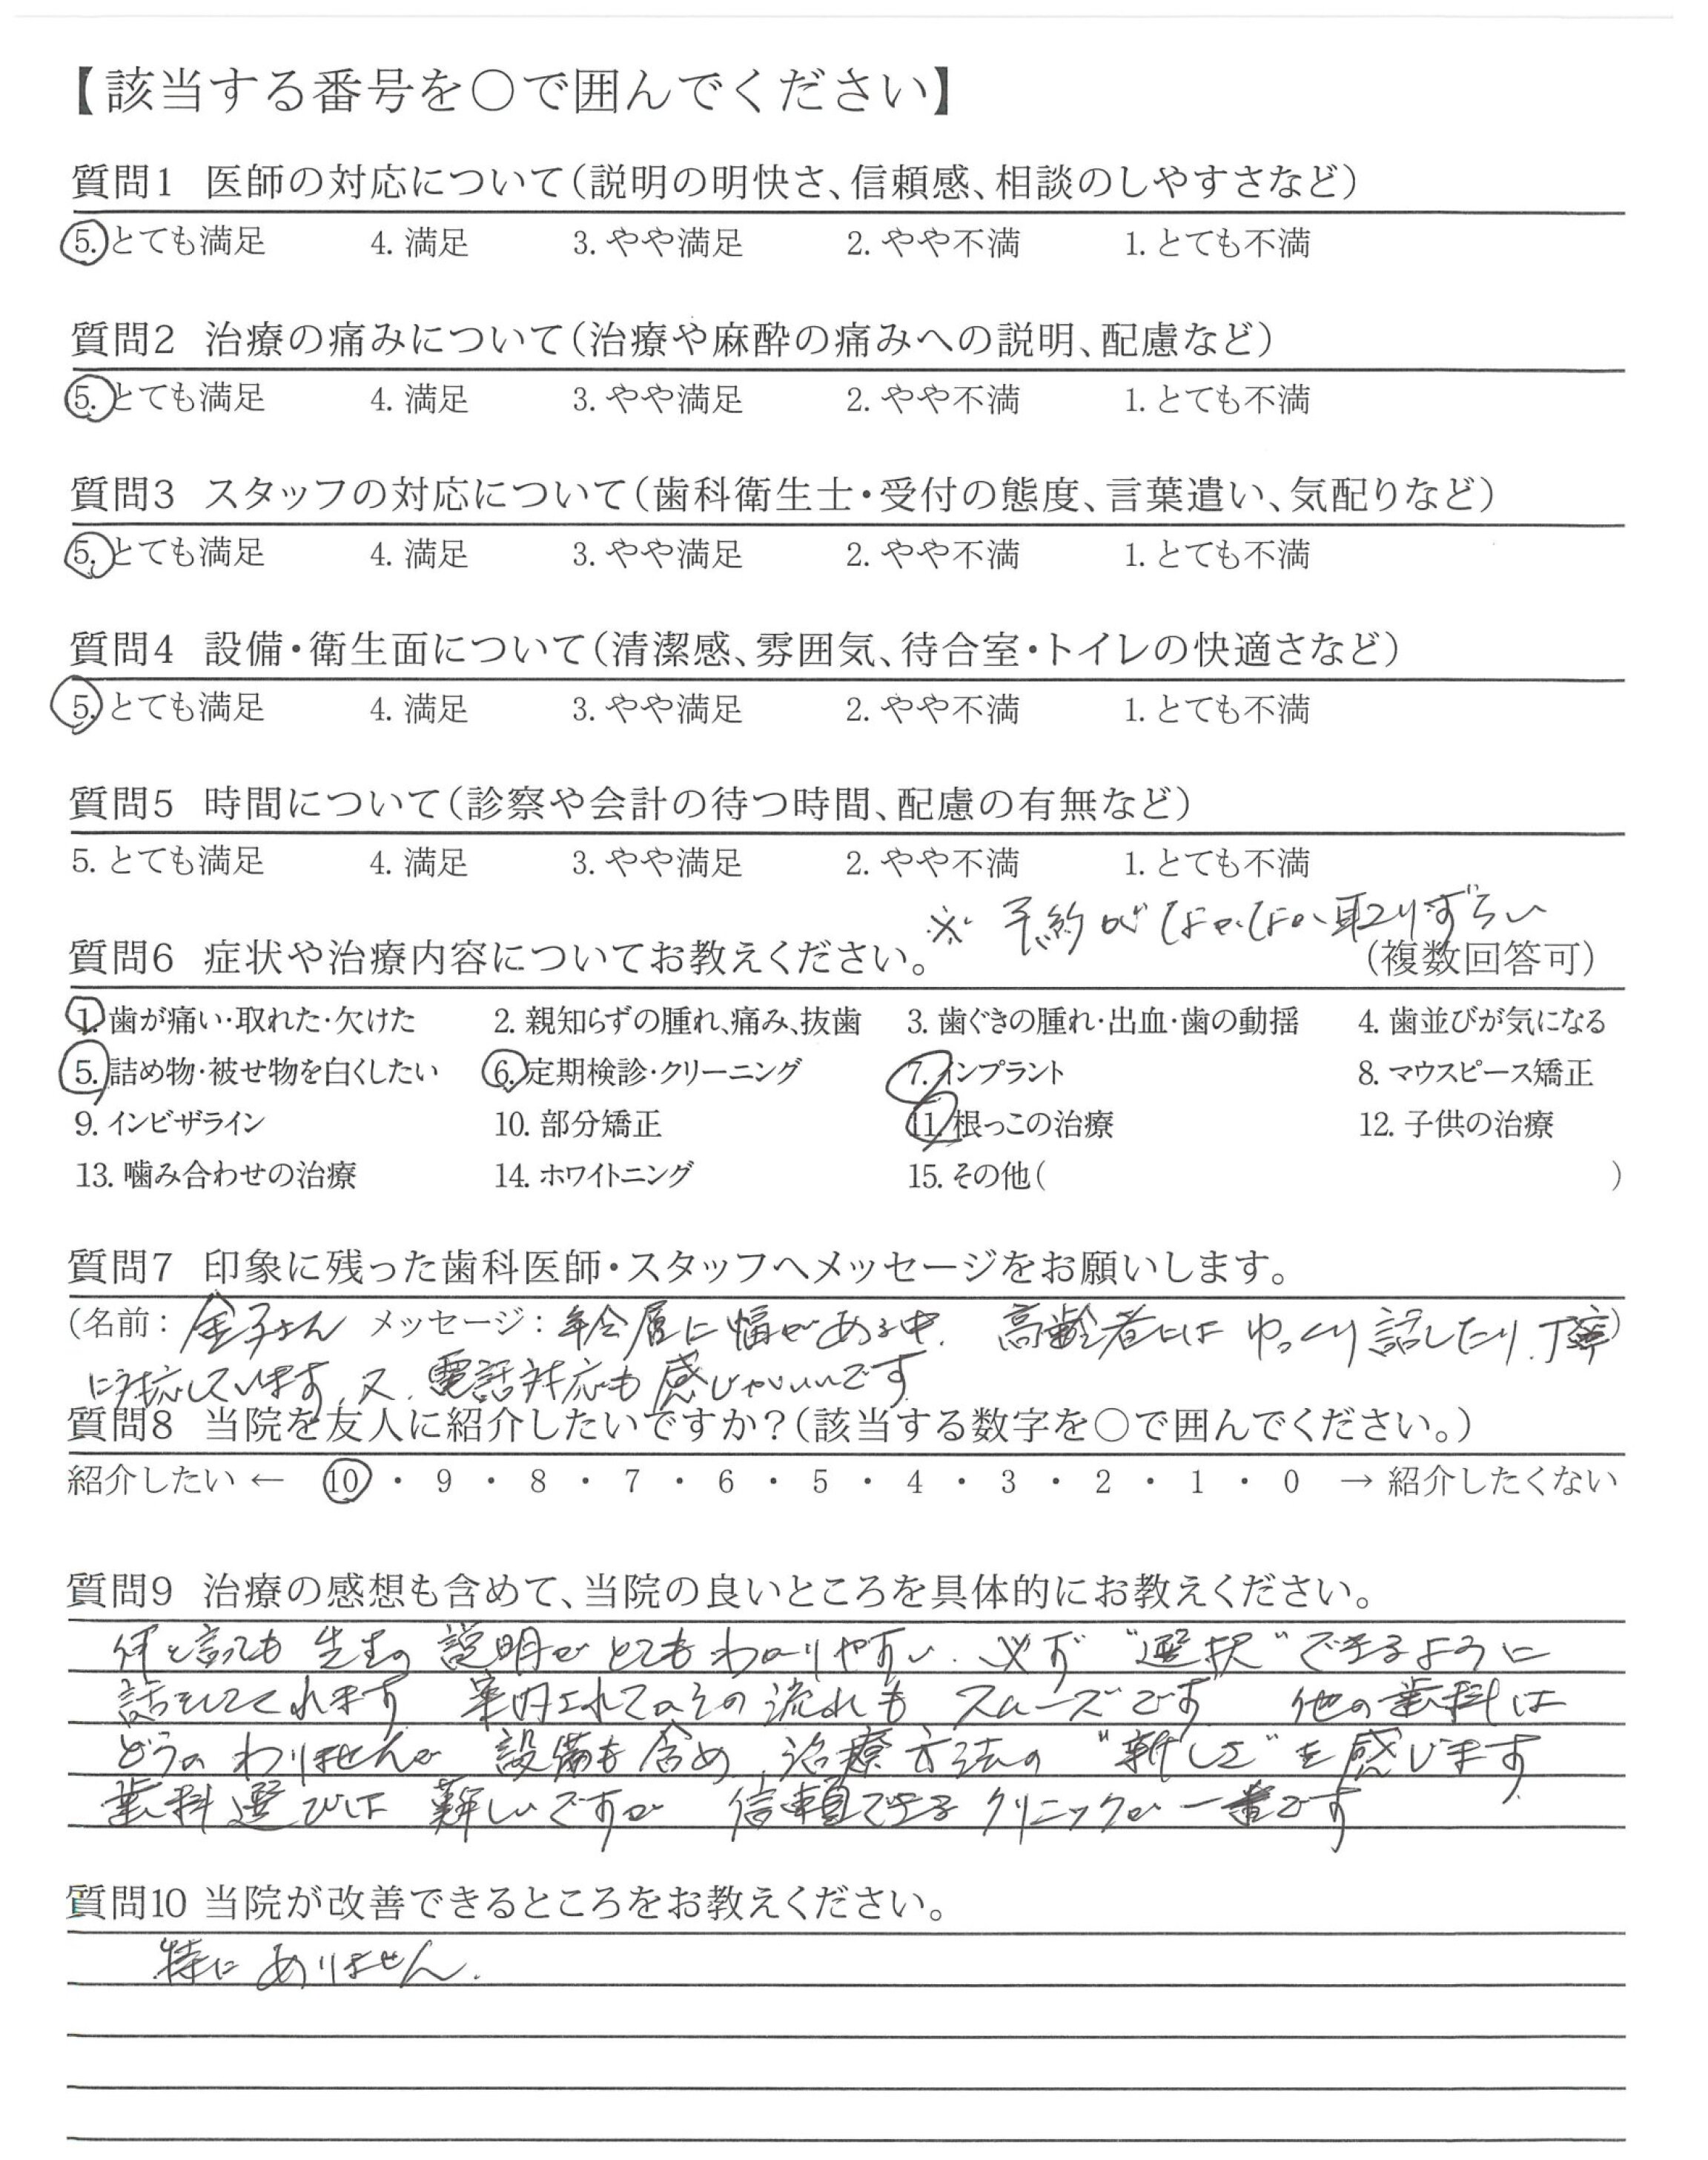 【該当する番号を○で囲んでください】
質問1 医師の対応について（説明の明快さ、信頼感、相談のしやすさなど）
5. とても満足 4. 満足 3. やや満足 2. やや不満 1. とても不満
質問2 治療の痛みについて（治療や麻酔の痛みへの説明、配慮など）
5. とても満足 4. 満足 3. やや満足 2. やや不満 1. とても不満
質問3 スタッフの対応について（歯科衛生士・受付の態度、言葉遣い、気配りなど）
5. とても満足 4. 満足 3. やや満足 2. やや不満 1. とても不満
質問4 設備・衛生面について（清潔感、雰囲気、待合室・トイレの快適さなど）
5. とても満足 4. 満足 3. やや満足 2. やや不満 1. とても不満
質問5 時間について（診察や会計の待つ時間、配慮の有無など）
5. とても満足 4. 満足 3. やや満足 2. やや不満 1. とても不満
※ 予約がなかなか取りずらい
質問6 症状や治療内容についてお教えください。 （複数回答可）
1. 歯が痛い・取れた・欠けた 2. 親知らずの腫れ、痛み、抜歯 3. 歯ぐきの腫れ・出血・歯の動揺 4. 歯並びが気になる
5. 詰め物・被せ物を白くしたい 6. 定期検診・クリーニング 7. インプラント 8. マウスピース矯正
9. インビザライン 10. 部分矯正 11. 根っこの治療 12. 子供の治療
13. 噛み合わせの治療 14. ホワイトニング 15. その他( )
質問7 印象に残った歯科医師・スタッフへメッセージをお願いします。
(名前： 金子さん メッセージ： 年令層に幅がある中、高齢者には ゆっくり話したり、丁寧)
に対応しています。又、電話対応も感じがいいです
質問8 当院を友人に紹介したいですか？（該当する数字を○で囲んでください。）
紹介したい ← 10 ・ 9 ・ 8 ・ 7 ・ 6 ・ 5 ・ 4 ・ 3 ・ 2 ・ 1 ・ 0 → 紹介したくない
質問9 治療の感想も含めて、当院の良いところを具体的にお教えください。
何と言っても 先生の 説明が とてもわかりやすい. 必ず “選択” できるように
話をしてくれます 案内されてからの流れも スムーズです 他の歯科は
どうか わかりませんが 設備も含め、治療方法の “新しさ” を感じます
歯科選びは 難しいですが 信頼できる クリニックが 一番です
質問10 当院が改善できるところをお教えください。
特に ありません.